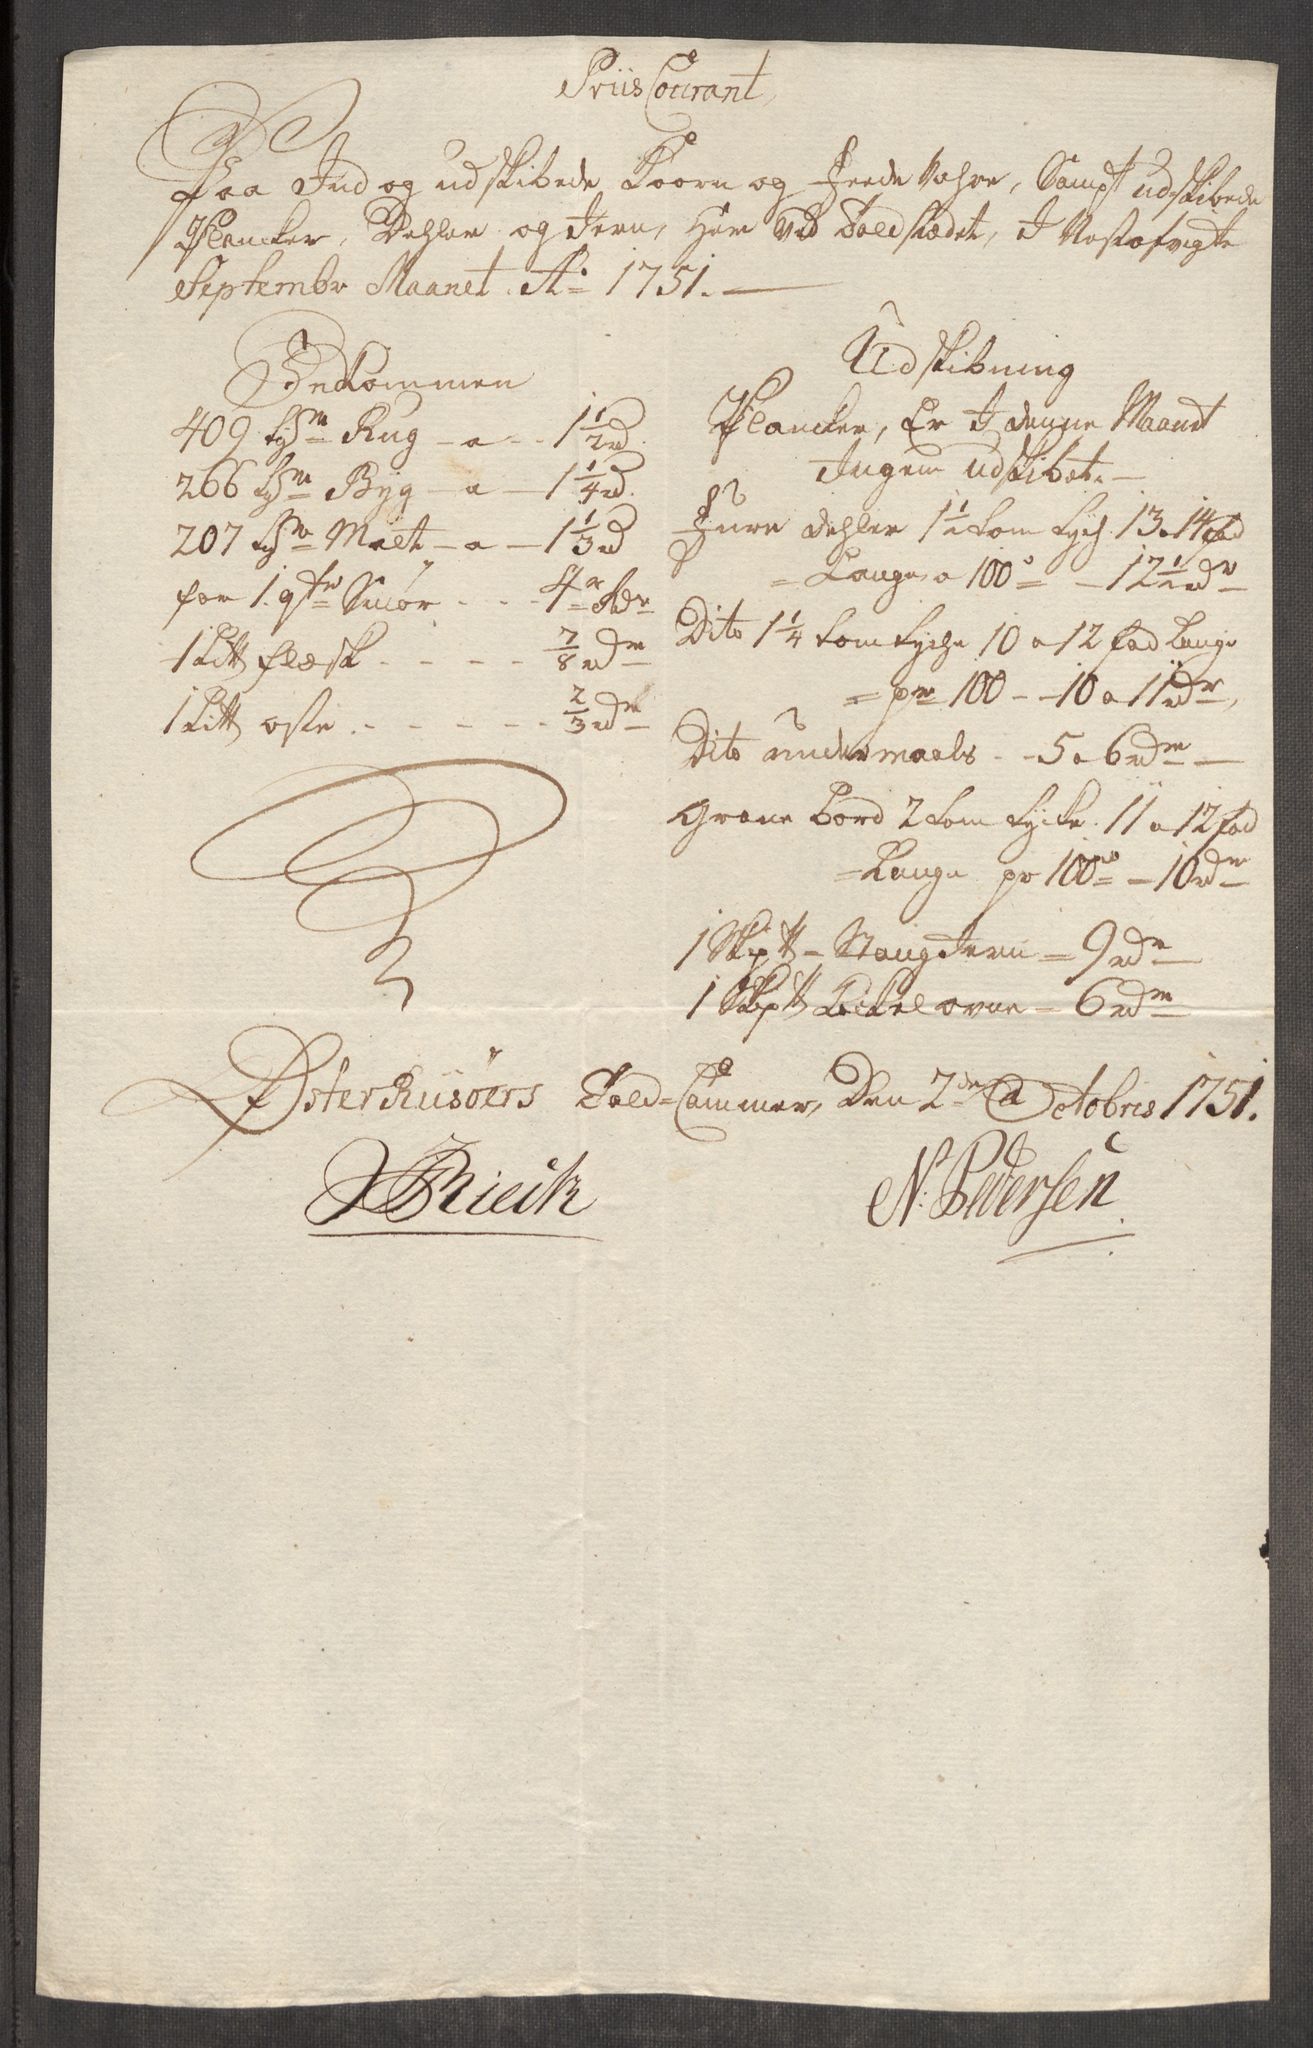 Priis Courant,
Paa Ind og udskibede Koorn og Feede Vahre, Sampt udskibede
Plancker, Dehler og Jern, Her Ved Toldstædet, I Nestafvigte
Septembr Maanet Aº 1751.
Indkommen
409 Tdr Rug - a - 1 1/2 rd
266 Tdr Byg - a - 1 1/4 rd.
207 Tdr Malt - a - 1 1/3 rd
for 1. qtr Smör - - 4 rdr
1 Litt flæsk - - - - 7/8 rdr
1 Litt oste - - - - - 2/3 rdr
Udskibning
Plancker, Er I denne Maanet
Ingen udskibet. -
Füre dehler 1 1/2 tom tych 13 a 14 fod
Lange a 100 - 12 1/2 rdr
Dito 1 1/4 tom tyche 10 a 12 fod Lange
= pr 100 - 10 a 11 rdr,
Dito undermaals - 5 a 6 rdr -
Grane Bord 2 tom tycke 11 a 12 fod
= Lange pr 100 - 10 rdr
1 Skp - Stang Jern = 9 rdr
1 Skp Kackelovne = 6 rdr
Østerrüsöers Told-Cammer, Den 2den Octobris 1751.
N. Pedersen